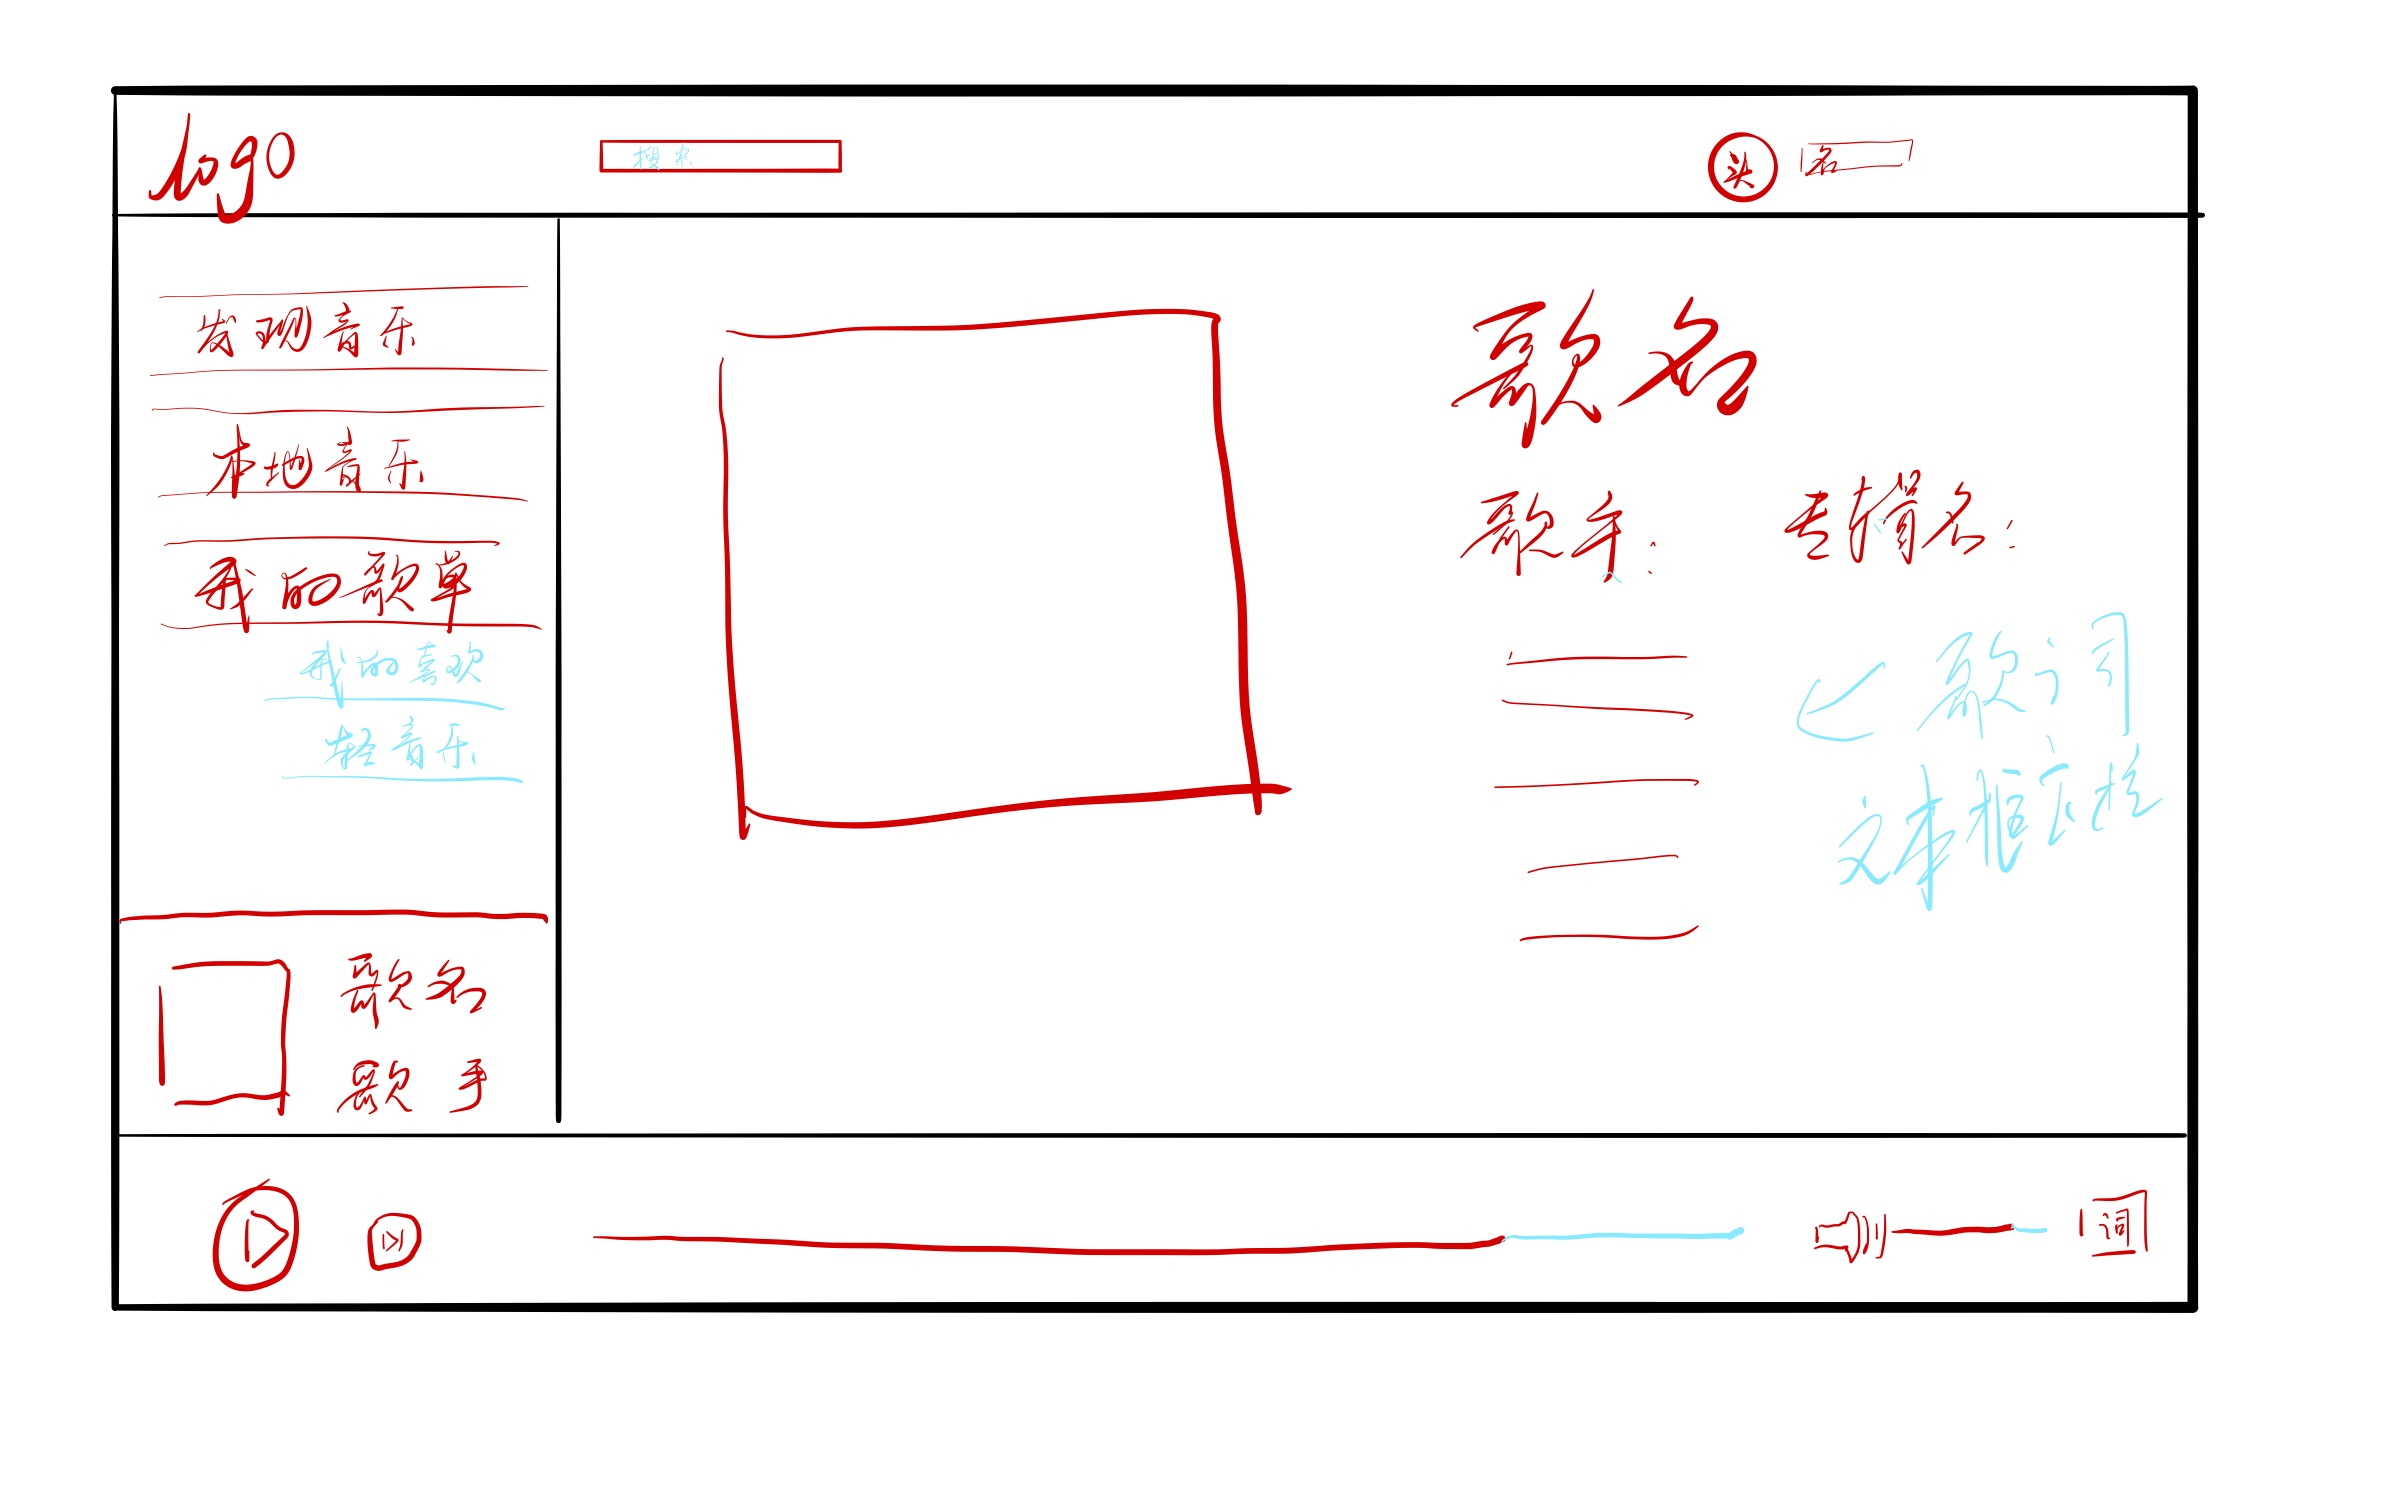 logo
搜索
头
名
发现音乐
本地音乐
我的歌单
我的喜欢
轻音乐
歌名
歌手
歌名
歌手: 专辑名:
歌词
文本框滚
词